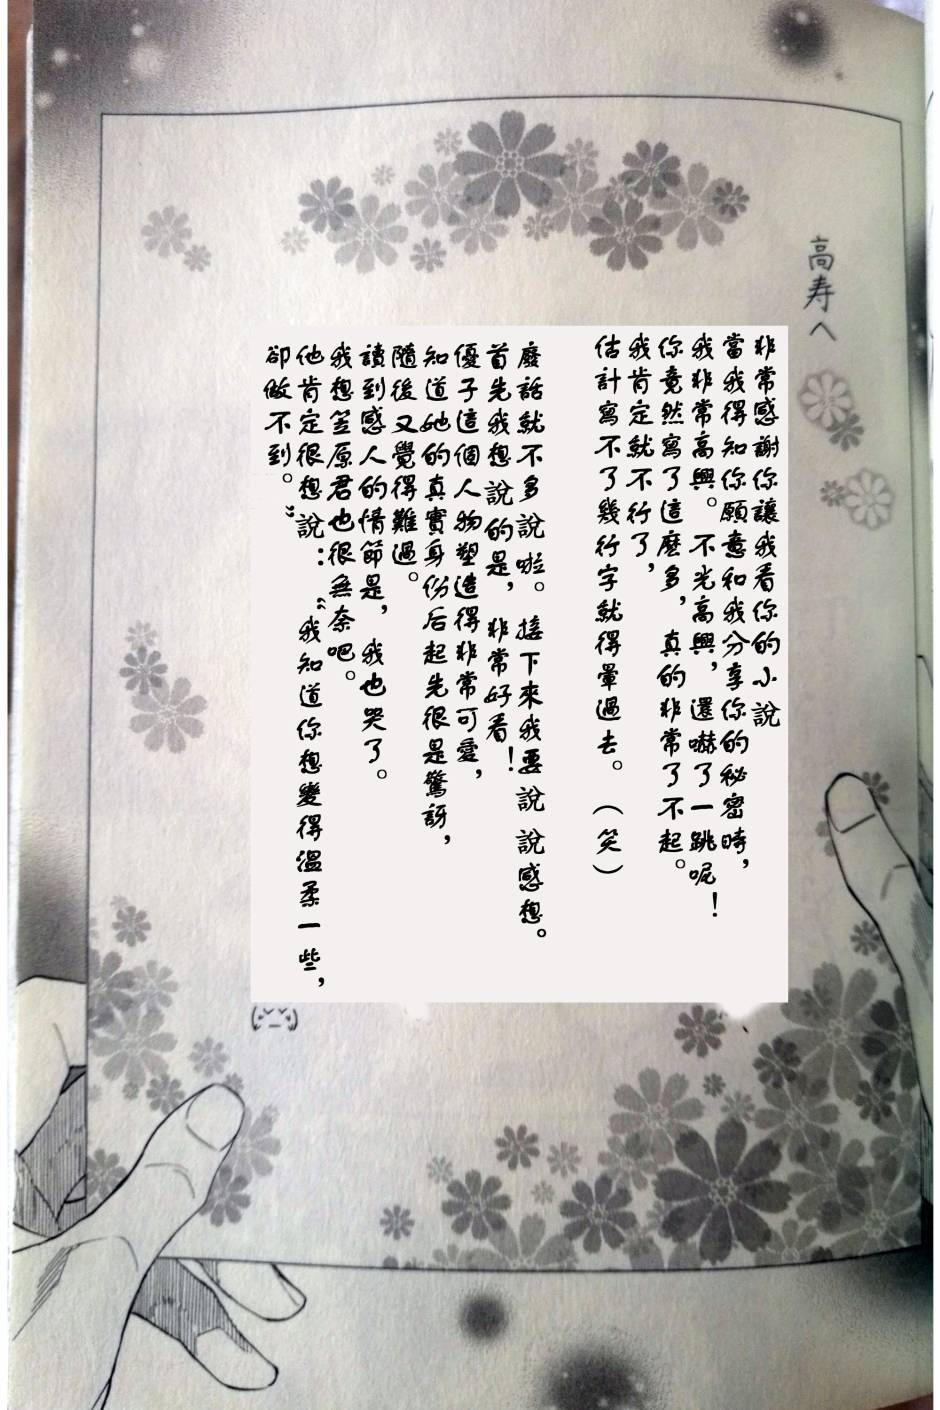 高寿へ
非常感謝你讓我看你的小說
當我得知你願意和我分享你的秘密時，
我非常高興。不光高興，還嚇了一跳呢！
你竟然寫了這麼多，真的非常了不起。
我肯定就不行了，
估計寫不了幾行字就得暈過去。（笑）
廢話就不多說啦。接下來我要說說感想。
首先我想說的是，非常好看！
優子這個人物塑造得非常可愛，
知道她的真實身份后起先很是驚訝，
隨後又覺得難過。
讀到感人的情節是，我也哭了。
我想笠原君也很無奈吧。
他肯定很想說：“我知道你想變得溫柔一些，
卻做不到。”